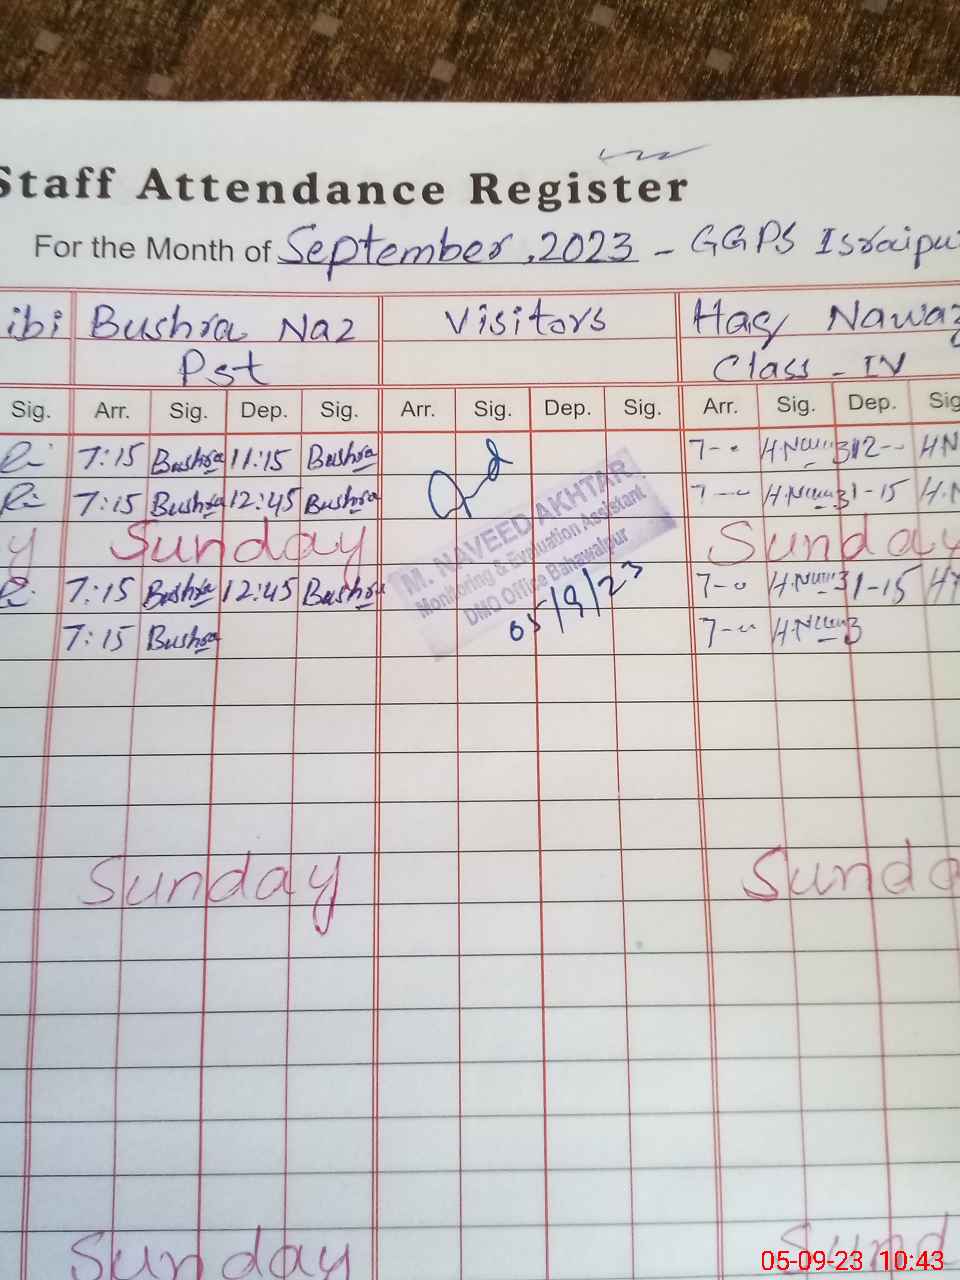 Staff Attendance Register
For the Month of September, 2023 - GGPS Israipu
ibi Bushra Naz Visitors Haq Nawaz
Pst Class - IV
Sig. Arr. Sig. Dep. Sig. Arr. Sig. Dep. Sig. Arr. Sig. Dep. Sig
7:15 Bushra 11:15 Bushra 7-.. 12-- HN
7:15 Bushra 12:45 Bushra 7-- 1-15 H.N
y Sunday Sunday
7:15 Bushra 12:45 Bushra 7-0 1-15
7:15 Bushra 7--
M. NAVEED AKHTAR
Monitoring & Evaluation Assistant
DMO Office Bahawalpur
05/9/23
Sunday Sunda
Sunday Sund
05-09-23 10:43